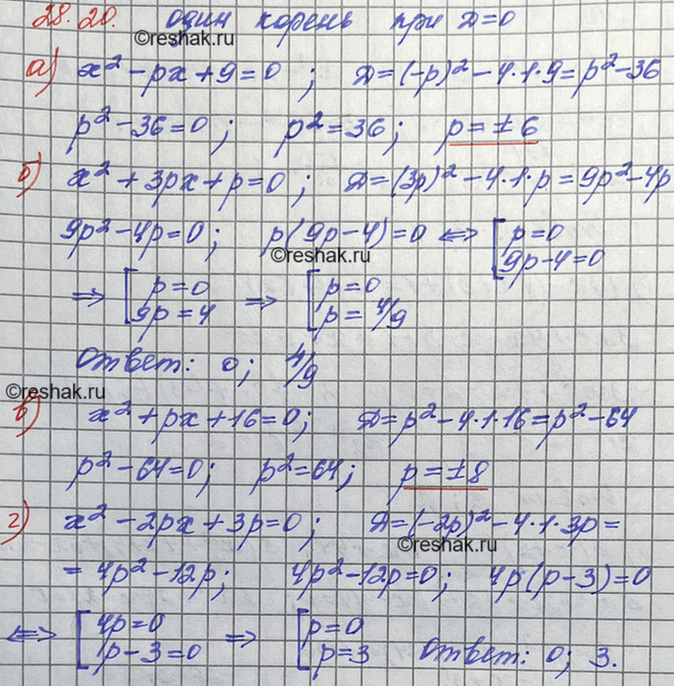 28.20. один корень при D=0
©reshak.ru
а) x² - px + 9 = 0 ; D = (-p)² - 4·1·9 = p² - 36
p² - 36 = 0 ; p² = 36 ; p = ±6
б) x² + 3px + p = 0 ; D = (3p)² - 4·1·p = 9p² - 4p
9p² - 4p = 0 ; p(9p - 4) = 0 ⇔ [ p = 0
9p - 4 = 0
©reshak.ru
⇒ [ p = 0 ⇒ [ p = 0
9p = 4 p = 4/9
Ответ: 0 ; 4/9
©reshak.ru
в) x² + px + 16 = 0 ; D = p² - 4·1·16 = p² - 64
p² - 64 = 0 ; p² = 64 ; p = ±8
г) x² - 2px + 3p = 0 ; D = (-2p)² - 4·1·3p =
©reshak.ru
= 4p² - 12p ; 4p² - 12p = 0 ; 4p(p - 3) = 0
⇔ [ 4p = 0 ⇒ [ p = 0
p - 3 = 0 p = 3 Ответ: 0 ; 3.